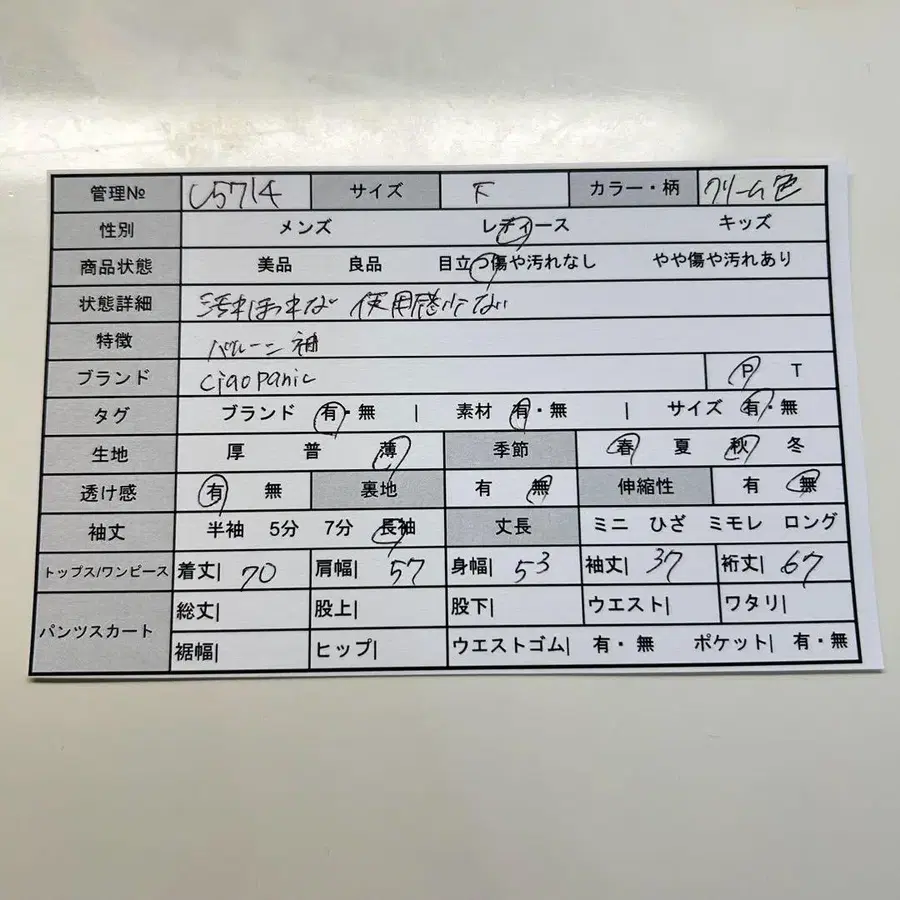 管理№ U5714 サイズ F カラー・柄 クリーム色
性別 メンズ レディース キッズ
商品状態 美品 良品 目立つ傷や汚れなし やや傷や汚れあり
状態詳細 使用感少ない
特徴 バルーン袖
ブランド ciaopanic P T
タグ ブランド 有・無 | 素材 有・無 | サイズ 有・無
生地 厚 普 薄 季節 春 夏 秋 冬
透け感 有 無 裏地 有 無 伸縮性 有 無
袖丈 半袖 5分 7分 長袖 丈長 ミニ ひざ ミモレ ロング
トップス/ワンピース 着丈| 70 肩幅| 57 身幅| 53 袖丈| 37 裄丈| 67
パンツスカート 総丈| 股上| 股下| ウエスト| ワタリ|
裾幅| ヒップ| ウエストゴム| 有・無 ポケット| 有・無